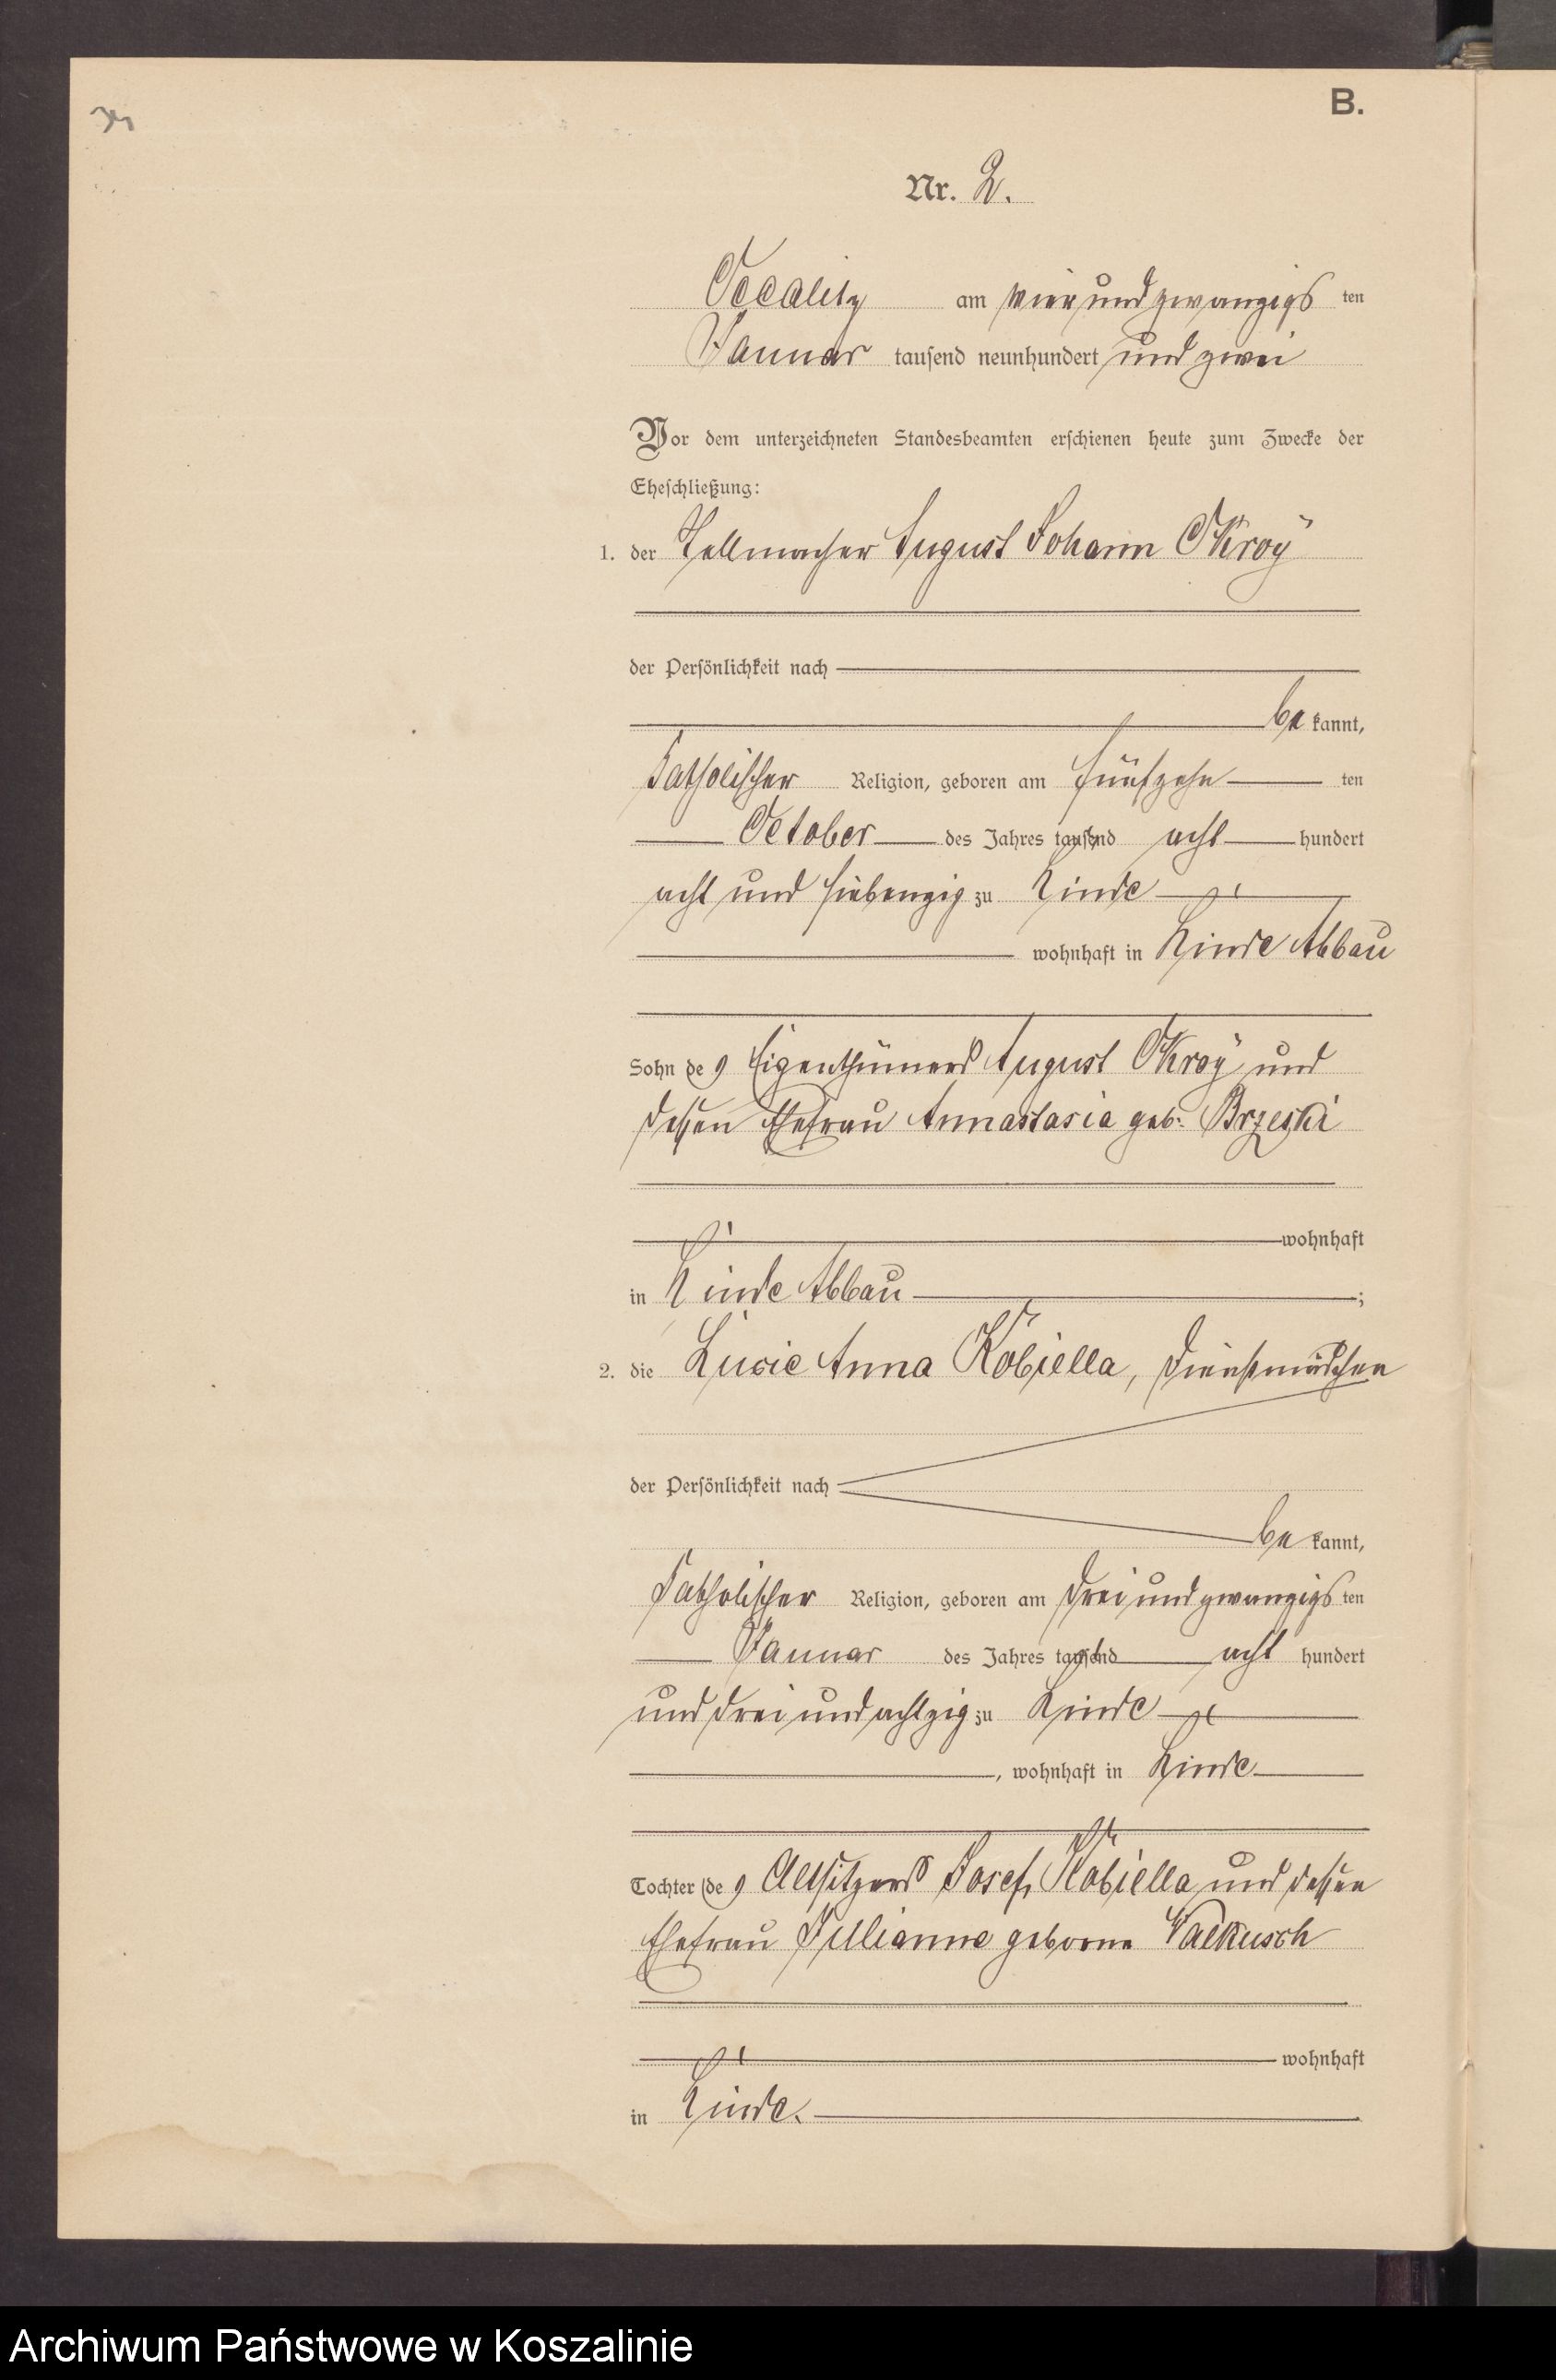 B.
Nr. 2.
Occalitz am vier und zwanzigs ten
Januar tausend neunhundert und zwei
Vor dem unterzeichneten Standesbeamten erschienen heute zum Zwecke der
Eheschließung:
1. der Stellmacher August Johann Okroÿ
der Persönlichkeit nach
be kannt,
katholischer Religion, geboren am fünfzehn ten
October des Jahres tausend acht hundert
acht und siebenzig zu Linde
wohnhaft in Linde Abbau
Sohn des Eigenthümers August Okroÿ und
dessen Ehefrau Annastasia geb. Brzeski
wohnhaft
in Linde Abbau ;
2. die Lucie Anna Kobiella, Dienstmädchen
der Persönlichkeit nach
be kannt,
katholischer Religion, geboren am drei und zwanzigs ten
Januar des Jahres tausend acht hundert
und drei und achtzig zu Linde
, wohnhaft in Linde
Tochter des Altsitzers Josef Kobiella und dessen
Ehefrau Jullianne geborne
wohnhaft
in Linde.
Archiwum Państwowe w Koszalinie